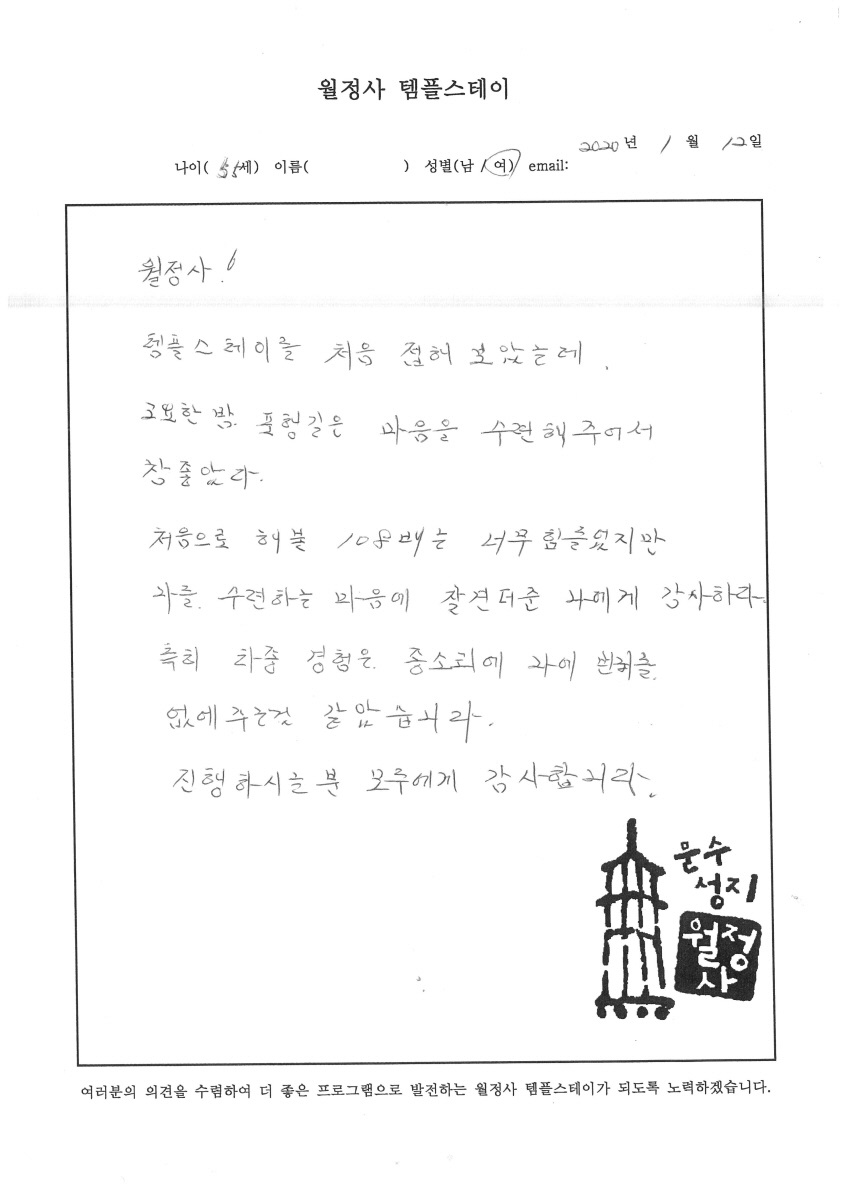 월정사 템플스테이
2020년 1월 12일
나이( 55세) 이름( ) 성별(남 / 여) email:
월정사!
템플스테이를 처음 접해 보았는데.
고요한 밤. 포행길은 마음을 수련해주어서
참좋았다.
처음으로 해본 108배는 너무힘들었지만
나를. 수련하는 마음에 잘견뎌준 나에게 감사하다.
특히 타종 경험은 종소리에 나에 번뇌를
없에주는것 같았습니다.
진행하시는 분 모두에게 감사합니다.
문수
성지
월정
사
여러분의 의견을 수렴하여 더 좋은 프로그램으로 발전하는 월정사 템플스테이가 되도록 노력하겠습니다.